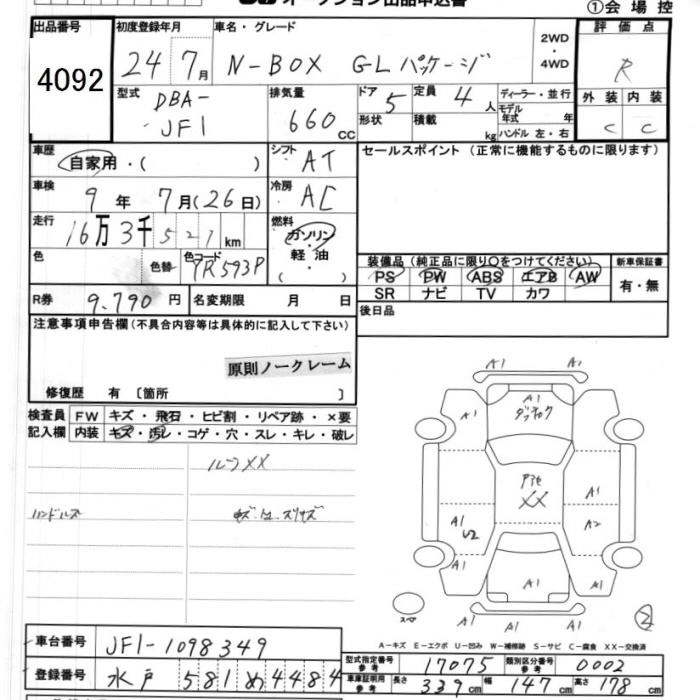 オークション出品申込書 ①会場控
出品番号 初度登録年月 車名・グレード 評価点
4092 24 7月 N-BOX GLパッケージ 2WD・4WD R
型式 DBA-JF1 排気量 660 cc ドア 5 定員 4人 ディーラー・並行 外装 内装
形状 積載 kg モデル年式 年 ハンドル 左・右 C C
車歴 自家用・( ) シフト AT セールスポイント (正常に機能するものに限ります)
車検 9年 7月(26日) 冷房 AC
走行 16万3千521km 燃料 ガソリン・軽油 ( )
色 色替 色コード YR593P 装備品(純正品に限り○をつけてください) 新車保証書
PS PW ABS エアB AW 有・無
SR ナビ TV カワ
R券 9,790円 名変期限 月 日 後日品
注意事項申告欄(不具合内容等は具体的に記入して下さい)
原則ノークレーム
修復歴 有 〔箇所 〕
検査員 FW キズ・飛石・ヒビ割・リペア跡・×要
記入欄 内装 キズ・汚レ・コゲ・穴・スレ・キレ・破レ
ルーフXX
ハンドルス
A1 A1
A1 A1 A1
XX A1
A1 U2 A2
A1 A1 A1
A1 A1 A1
スペア 2
A-キズ E-エクボ U-凹み W-補修跡 S-サビ C-腐食 XX-交換済
車台番号 JF1-1098349
型式指定番号 参考 17075 類別区分番号 参考 0002
登録番号 水戸 581 め 4484
車庫証明用 参考 長さ 339cm 幅 147cm 高さ 178cm